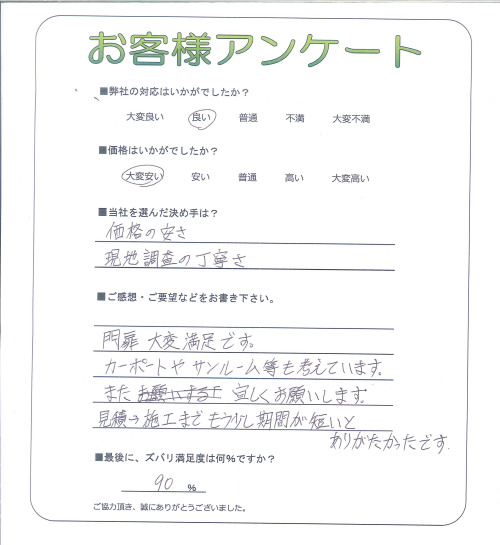 お客様アンケート
■弊社の対応はいかがでしたか？
大変良い 良い 普通 不満 大変不満
■価格はいかがでしたか？
大変安い 安い 普通 高い 大変高い
■当社を選んだ決め手は？
価格の安さ
現地調査の丁寧さ
■ご感想・ご要望などをお書き下さい。
門扉 大変満足です。
カーポートや サンルーム等も考えています。
また お願いする 宜しくお願いします。
見積→施工まで もう少し期間が短いと
ありがたかったです.
■最後に、ズバリ満足度は何%ですか？
90 %
ご協力頂き、誠にありがとうございました。